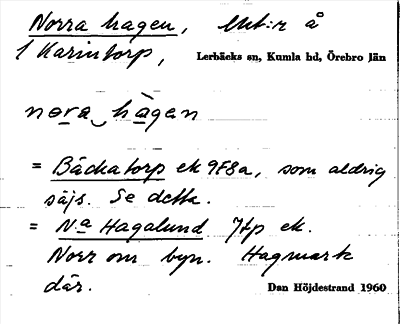 Norra hagen, Ent:r å
1 Karintorp, Lerbäcks sn, Kumla hd, Örebro län
nora hàgen
= Bäckatorp ek 9F8a, som aldrig
säjs. Se detta.
= N:a Hagalund Jtp ek.
Norr om byn. Hagmark
där. Dan Höjdestrand 1960